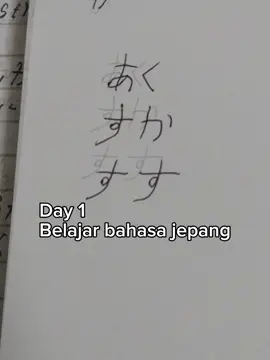 あく
すか
すす
Day 1
Belajar bahasa jepang